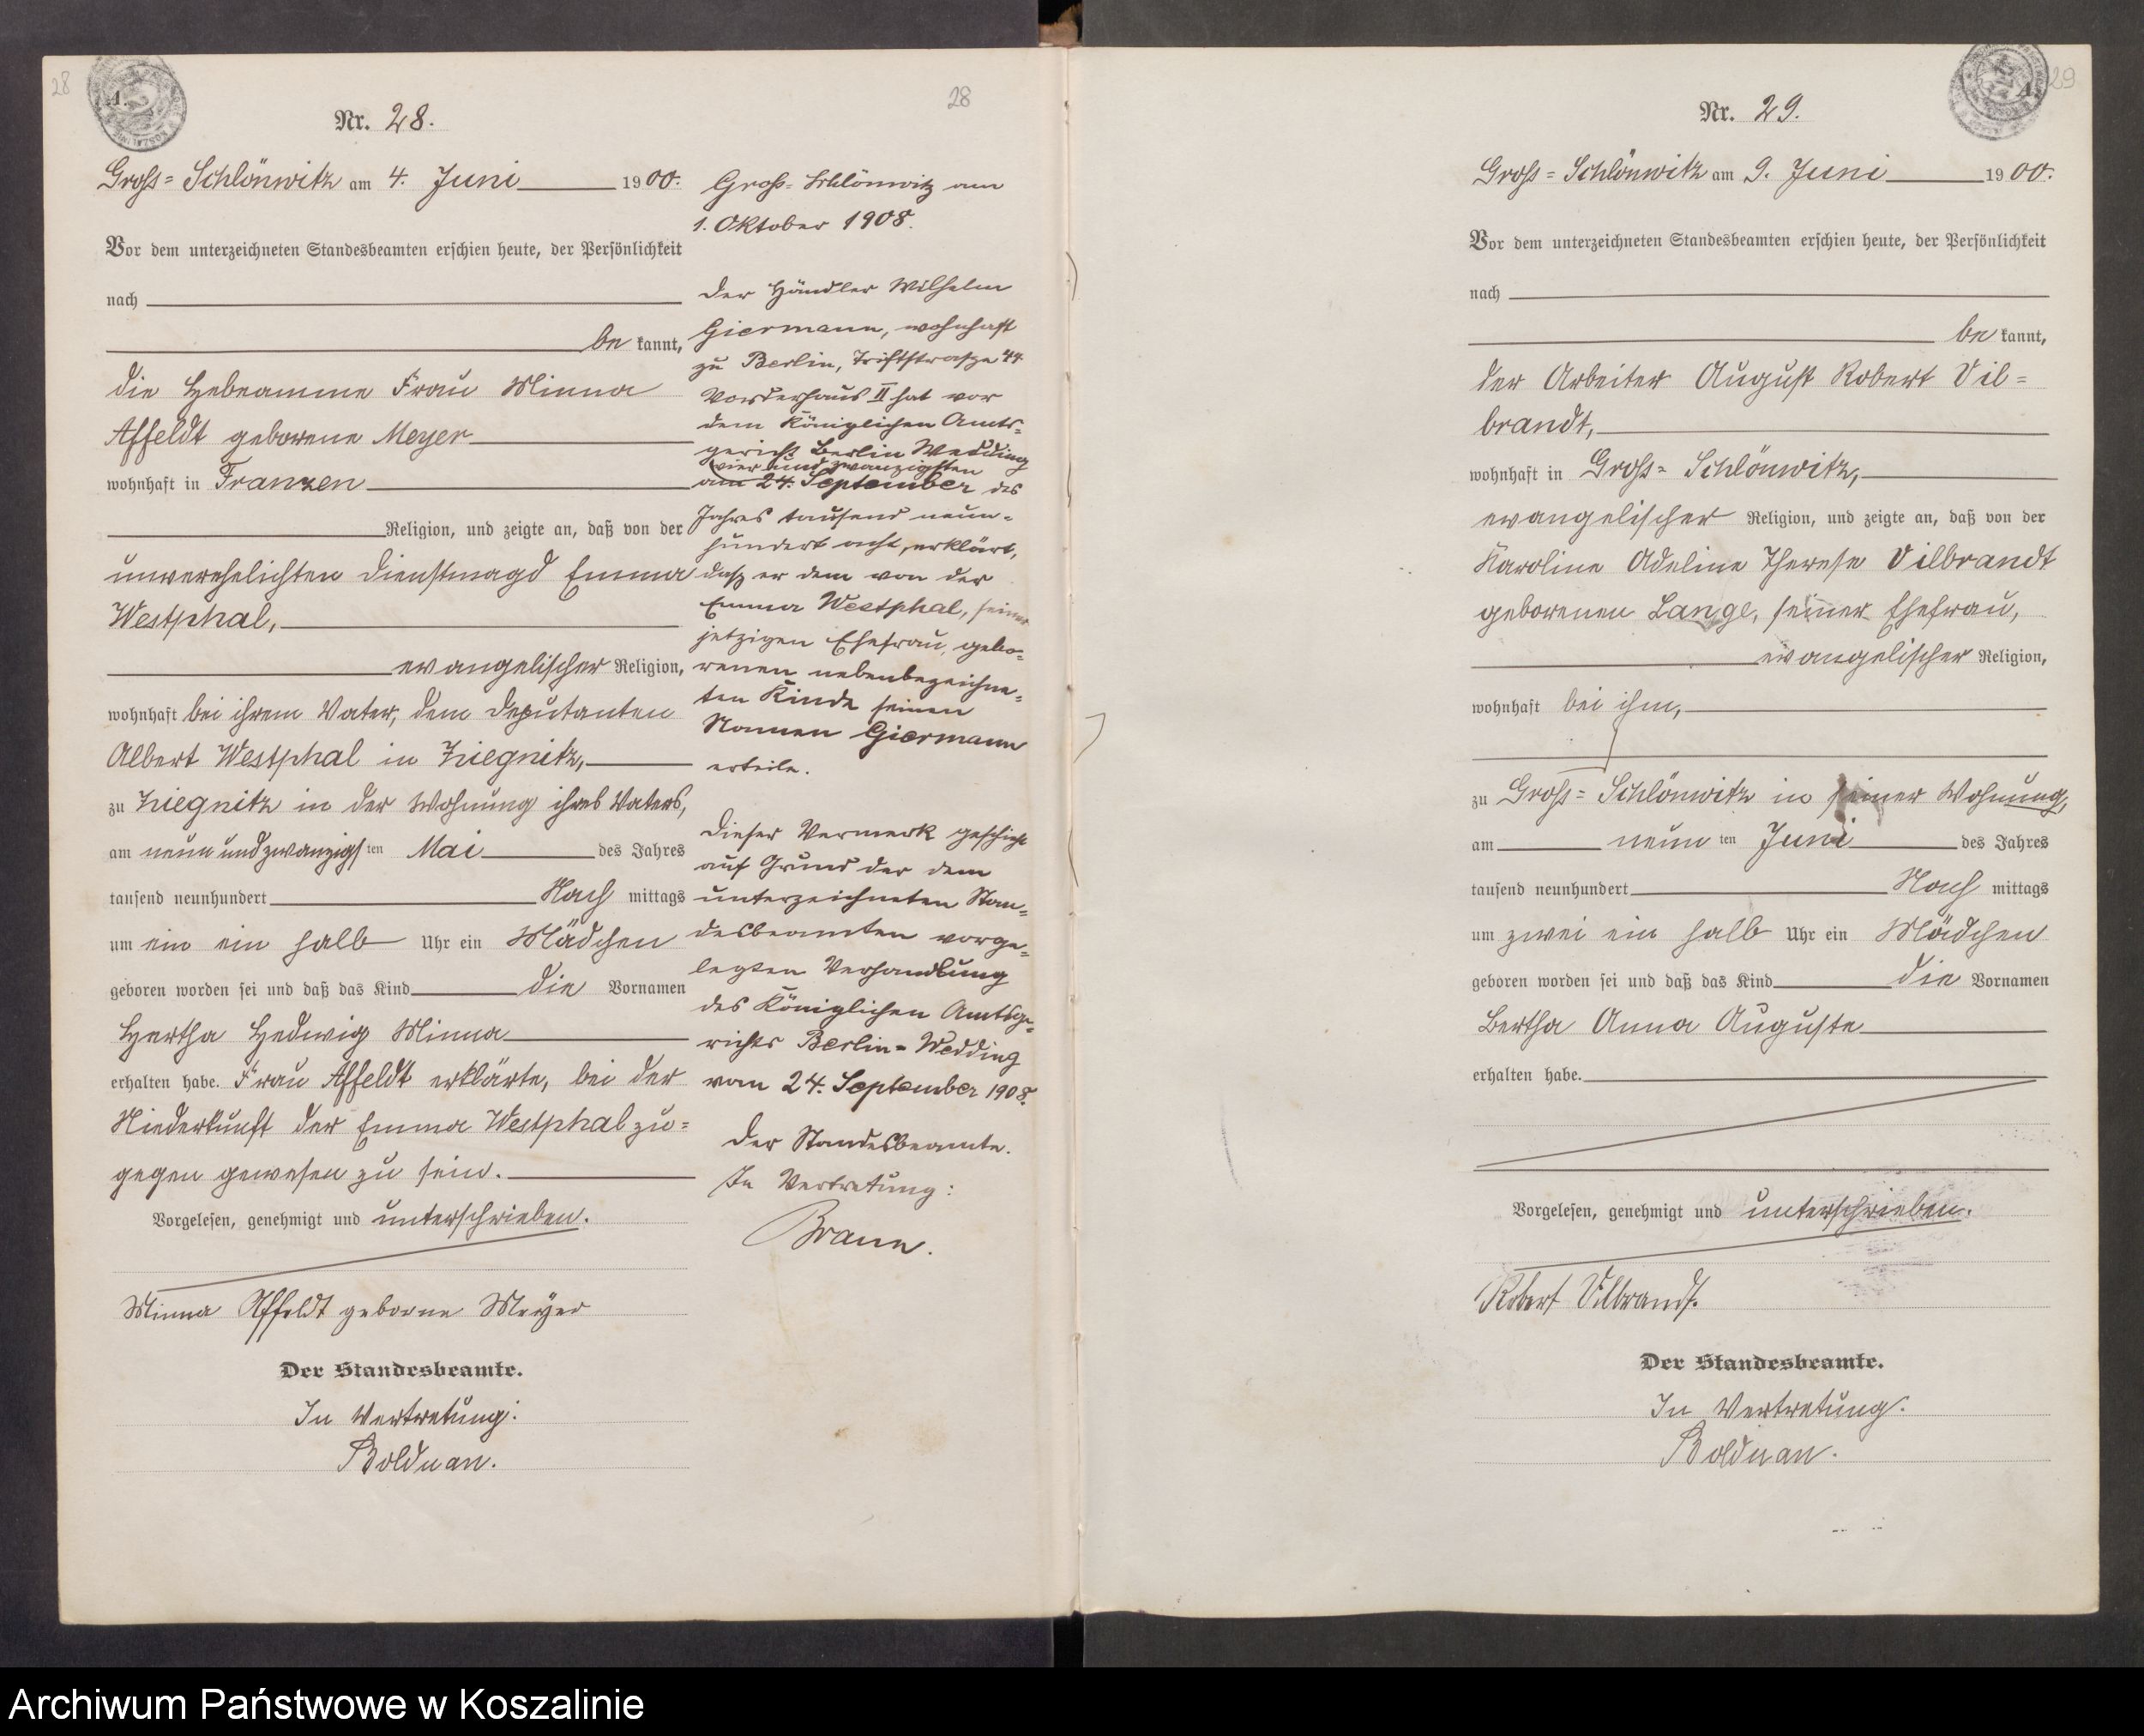 28
Nr. 28.
Groß-Schlönwitz am 4. Juni 1900.
Vor dem unterzeichneten Standesbeamten erschien heute, der Persönlichkeit
nach
be kannt,
die Hebeamme Frau Minna
Affeldt geborene Meyer
wohnhaft in Franzen
Religion, und zeigte an, daß von der
unverehelichten Dienstmagd Emma
Westphal,
evangelischer Religion,
wohnhaft bei ihrem Vater, dem Deputanten
Albert Westphal in Ziegnitz,
zu Ziegnitz in der Wohnung ihres Vaters,
am neun und zwanzigs ten Mai des Jahres
tausend neunhundert Nach mittags
um ein ein halb Uhr ein Mädchen
geboren worden sei und daß das Kind die Vornamen
Hertha Hedwig Minna
erhalten habe. Frau Affeldt erklärte, bei der
Niederkunft der Emma Westphal zu=
gegen gewesen zu sein.
Vorgelesen, genehmigt und unterschrieben.
Minna Affeldt geborne Meyer
Der Standesbeamte.
In Vertretung:
Bolduan.
28
Groß-Schlönwitz am
1. Oktober 1908.
Der Händler Wilhelm
Giermann, wohnhaft
zu Berlin, Triftstraße 44
Vorderhaus II hat vor
dem Königlichen Amts=
gericht Berlin Wedding
vier und zwanzigsten
am 24. September des
Jahres tausend neun=
hundert acht, erklärt,
daß er dem von der
Emma Westphal, seiner
jetzigen Ehefrau, gebo=
renen nebenbezeichne=
ten Kinde seinen
Namen Giermann
erteile.
Dieser Vermerk geschieht
auf Grund der dem
unterzeichneten Stan=
desbeamten vorge=
legten Verhandlung
des Königlichen Amtsge=
richts Berlin=Wedding
vom 24. September 1908.
Der Standesbeamte.
In Vertretung:
Braun.
29
Nr. 29.
Groß=Schlönwitz am 9. Juni 1900.
Vor dem unterzeichneten Standesbeamten erschien heute, der Persönlichkeit
nach
be kannt,
der Arbeiter August Robert Vil=
brandt,
wohnhaft in Groß=Schlönwitz,
evangelischer Religion, und zeigte an, daß von der
Karoline Adeline Therese Vilbrandt
geborenen Lange, seiner Ehefrau,
evangelischer Religion,
wohnhaft bei ihm,
zu Groß=Schlönwitz in seiner Wohnung,
am neun ten Juni des Jahres
tausend neunhundert Nach mittags
um zwei ein halb Uhr ein Mädchen
geboren worden sei und daß das Kind die Vornamen
Bertha Anna Auguste
erhalten habe.
Vorgelesen, genehmigt und unterschrieben.
Robert Vilbrandt.
Der Standesbeamte.
In Vertretung:
Bolduan.
Archiwum Państwowe w Koszalinie